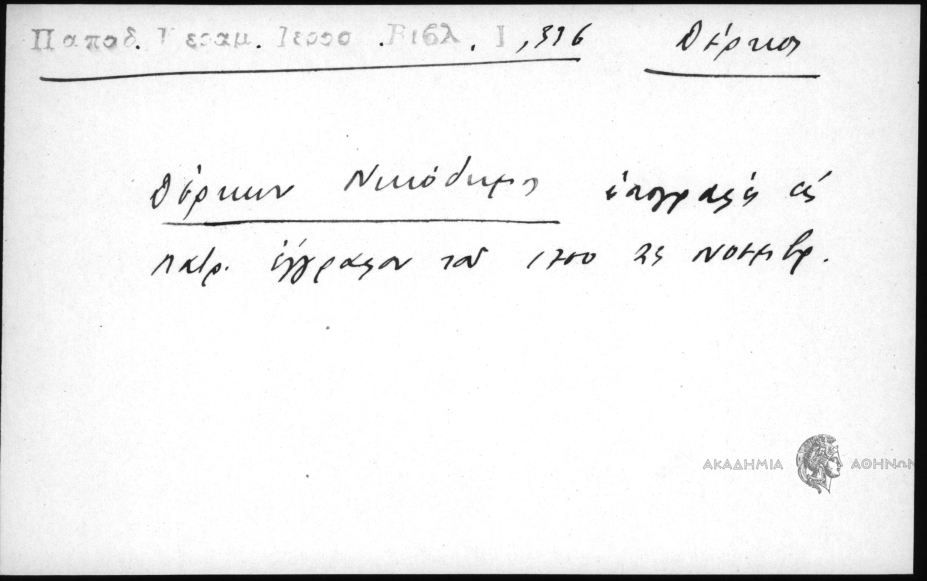 Παπαδ. Κεραμ. Ιεροσ. Βιβλ. Ι, 316 Δέρκοι
Δέρκων Νικόδημος ὑπογραφή εἰς
πατρ. ἔγγραφον τοῦ 1700 25 Νοεμβρ.
ΑΚΑΔΗΜΙΑ ΑΘΗΝΩΝ